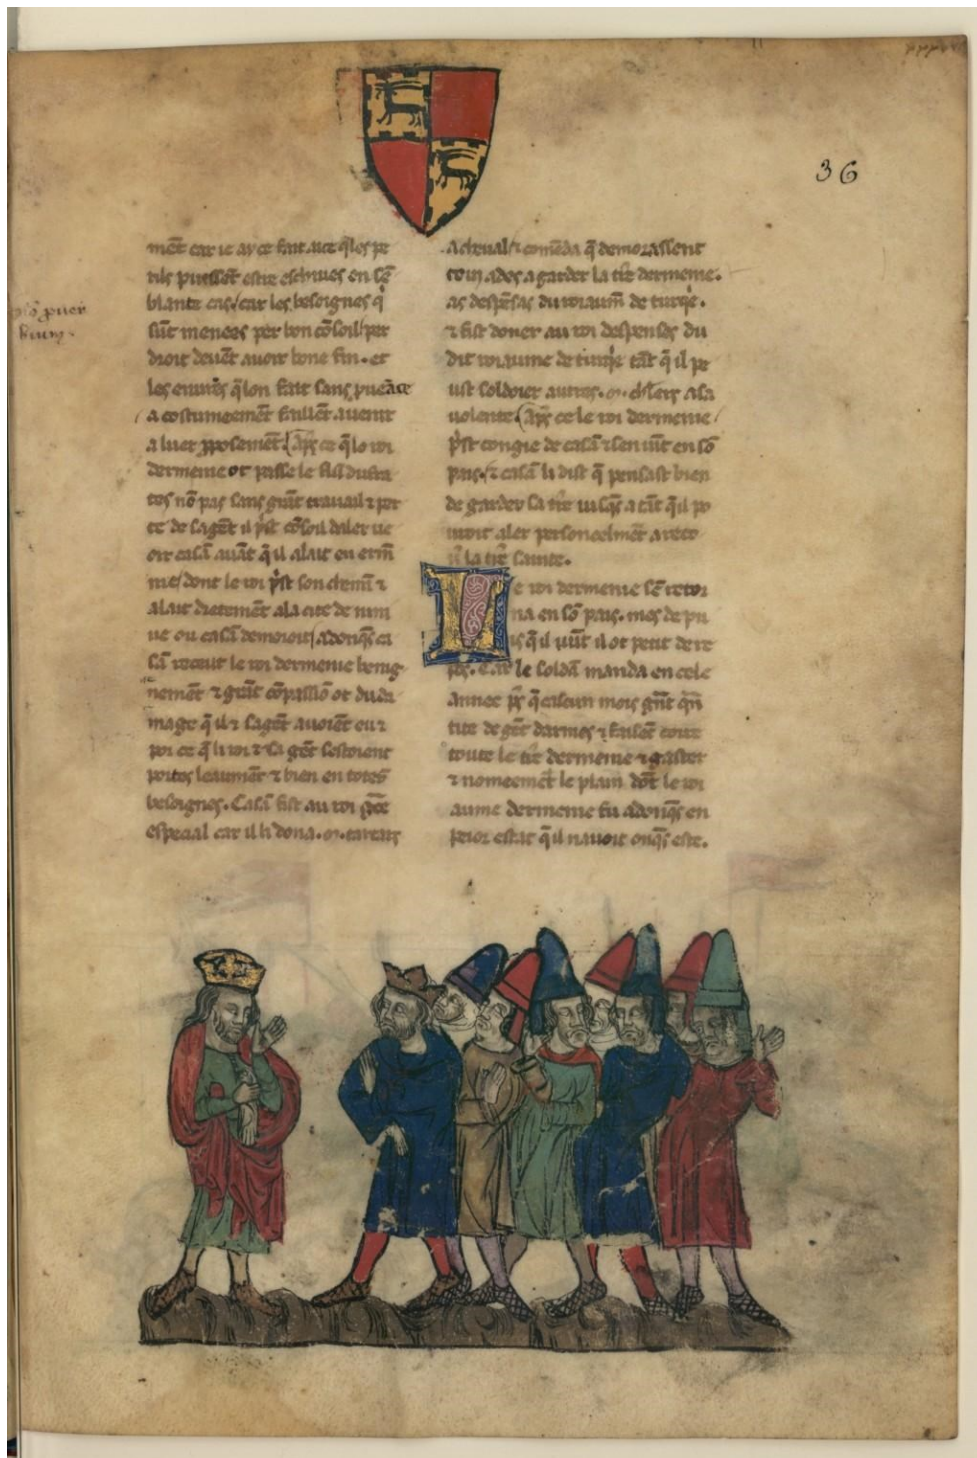 36
ment car ie ay ce fait. auce q̃ les pe
rils puissẽt estre eschiues en sẽ
blante cas. car les besoignes q̃
sũt menees per bon cõsoil per
droit deuẽt auoir bone fin. et
les euures q̃ lon fait sans
a costumeemẽt faillẽt auenir
a luer p̃posement. ap̃s ce q̃ lo roi
dermenie ot passe le flũ dufra
tes nõ pas sans grãt trauail ⁊ per
te de sa gẽt il p̃st cõsoil daler ue
oir casã auãt q̃ il alast en erm̃
nie dont le roi p̃st son chemĩ ⁊
alait dretemẽt a la cite de nini
ue ou casã demoroit. adonq̃s ca
sã receut le roi dermenie benig
nement ⁊ grãt cõpassiõ ot du da
mage q̃ il ⁊ sa gẽt auoiẽt eu ⁊
por ce q̃ li roi ⁊ sa gẽt sestoient
portes leaumẽt ⁊ bien en totes
besoignes. Casã fist au roi
especial car il li dona .m. tartars
a cheual ⁊ comẽda q̃ demorassent
a garder la t̃re dermenie.
as despẽsas du roiaum̃ de turq̃e.
⁊ fist doner au roi despenses du
dit roiaume de turq̃e tãt q̃ il pe
ust soldoier autres .m. chl̃rs a sa
uolente. ap̃s ce le roi dermenie
p̃st congie de casã ⁊ sen uĩt en sõ
pais. ⁊ casã li dist q̃ pensast bien
de garder sa t̃re iusq̃s a tãt q̃ il po
uroit aler personelmẽt a reco
la t̃re sainte.
Le roi dermenie sẽ retor
na en sõ pais. mes de pu
is q̃ il uĩt il ot petit de re
pos. car le soldã manda en cele
annee p̃s q̃ cascun mois gñt q̃n
tite de gẽt darmes ⁊ faisẽt corre
toute le t̃re dermenie ⁊ gaster
⁊ nomeemẽt le plain dõt le roi
aume dermenie fu adonq̃s en
peior estat q̃ il nauoit onq̃s este.